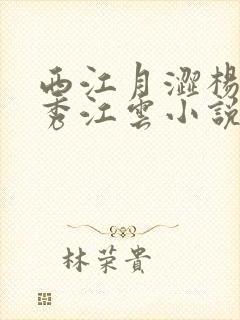 西江月澀楊
秀江雲小說
林荣貴